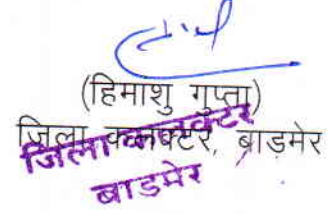 (हिमाशु गुप्ता)
जिला कलक्टर, बाड़मेर
जिला कलक्टर
बाड़मेर